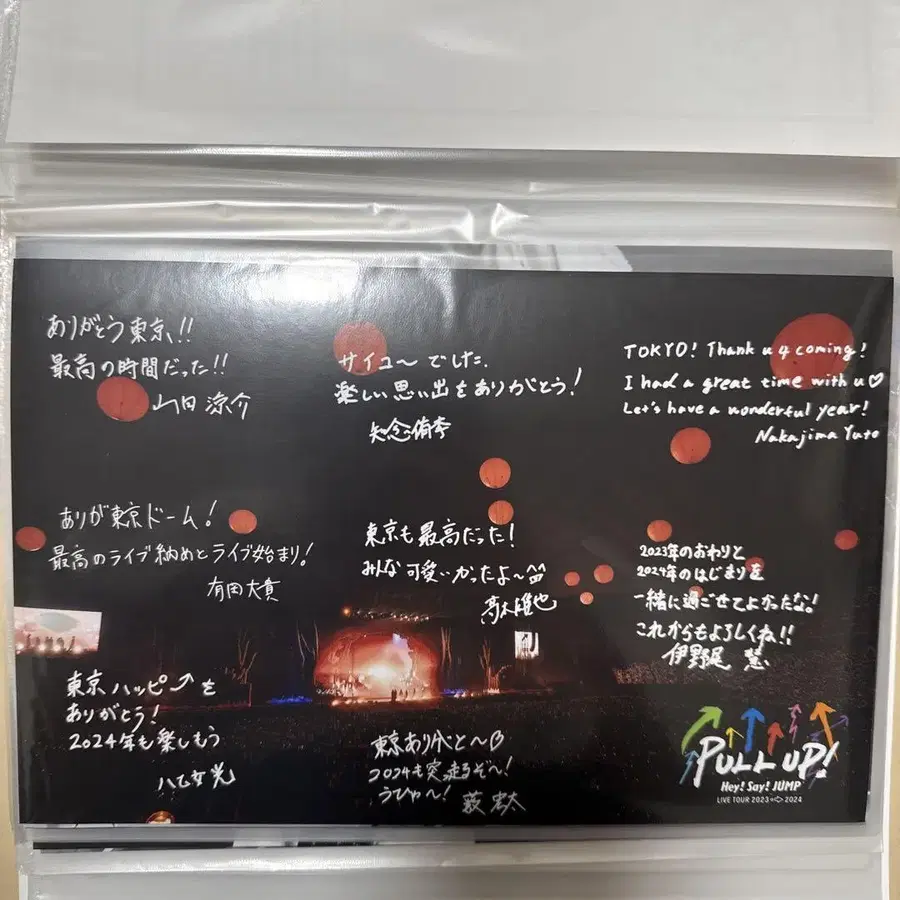 ありがとう東京!!
最高の時間だった!!
山田涼介
サイコ〜でした.
楽しい思い出をありがとう!
知念侑李
TOKYO! Thank u 4 coming!
I had a great time with u♡
Let's have a wonderful year!
Nakajima Yuto
ありが東京ドーム!
最高のライブ納めとライブ始まり!
有岡大貴
東京も最高だった!
みんな可愛いかったよ〜^^
髙木雄也
2023年のおわりと
2024年のはじまりを
一緒に過ごせてよかったな!
これからもよろしくね!!
伊野尾 慧
東京ハッピー⤴を
ありがとう!
2024年も楽しもう
八乙女光
東京ありがと〜♡
2024も突走るぞ〜!
うひゃ〜!
薮 宏太
PULL UP!
Hey! Say! JUMP
LIVE TOUR 2023⇨2024